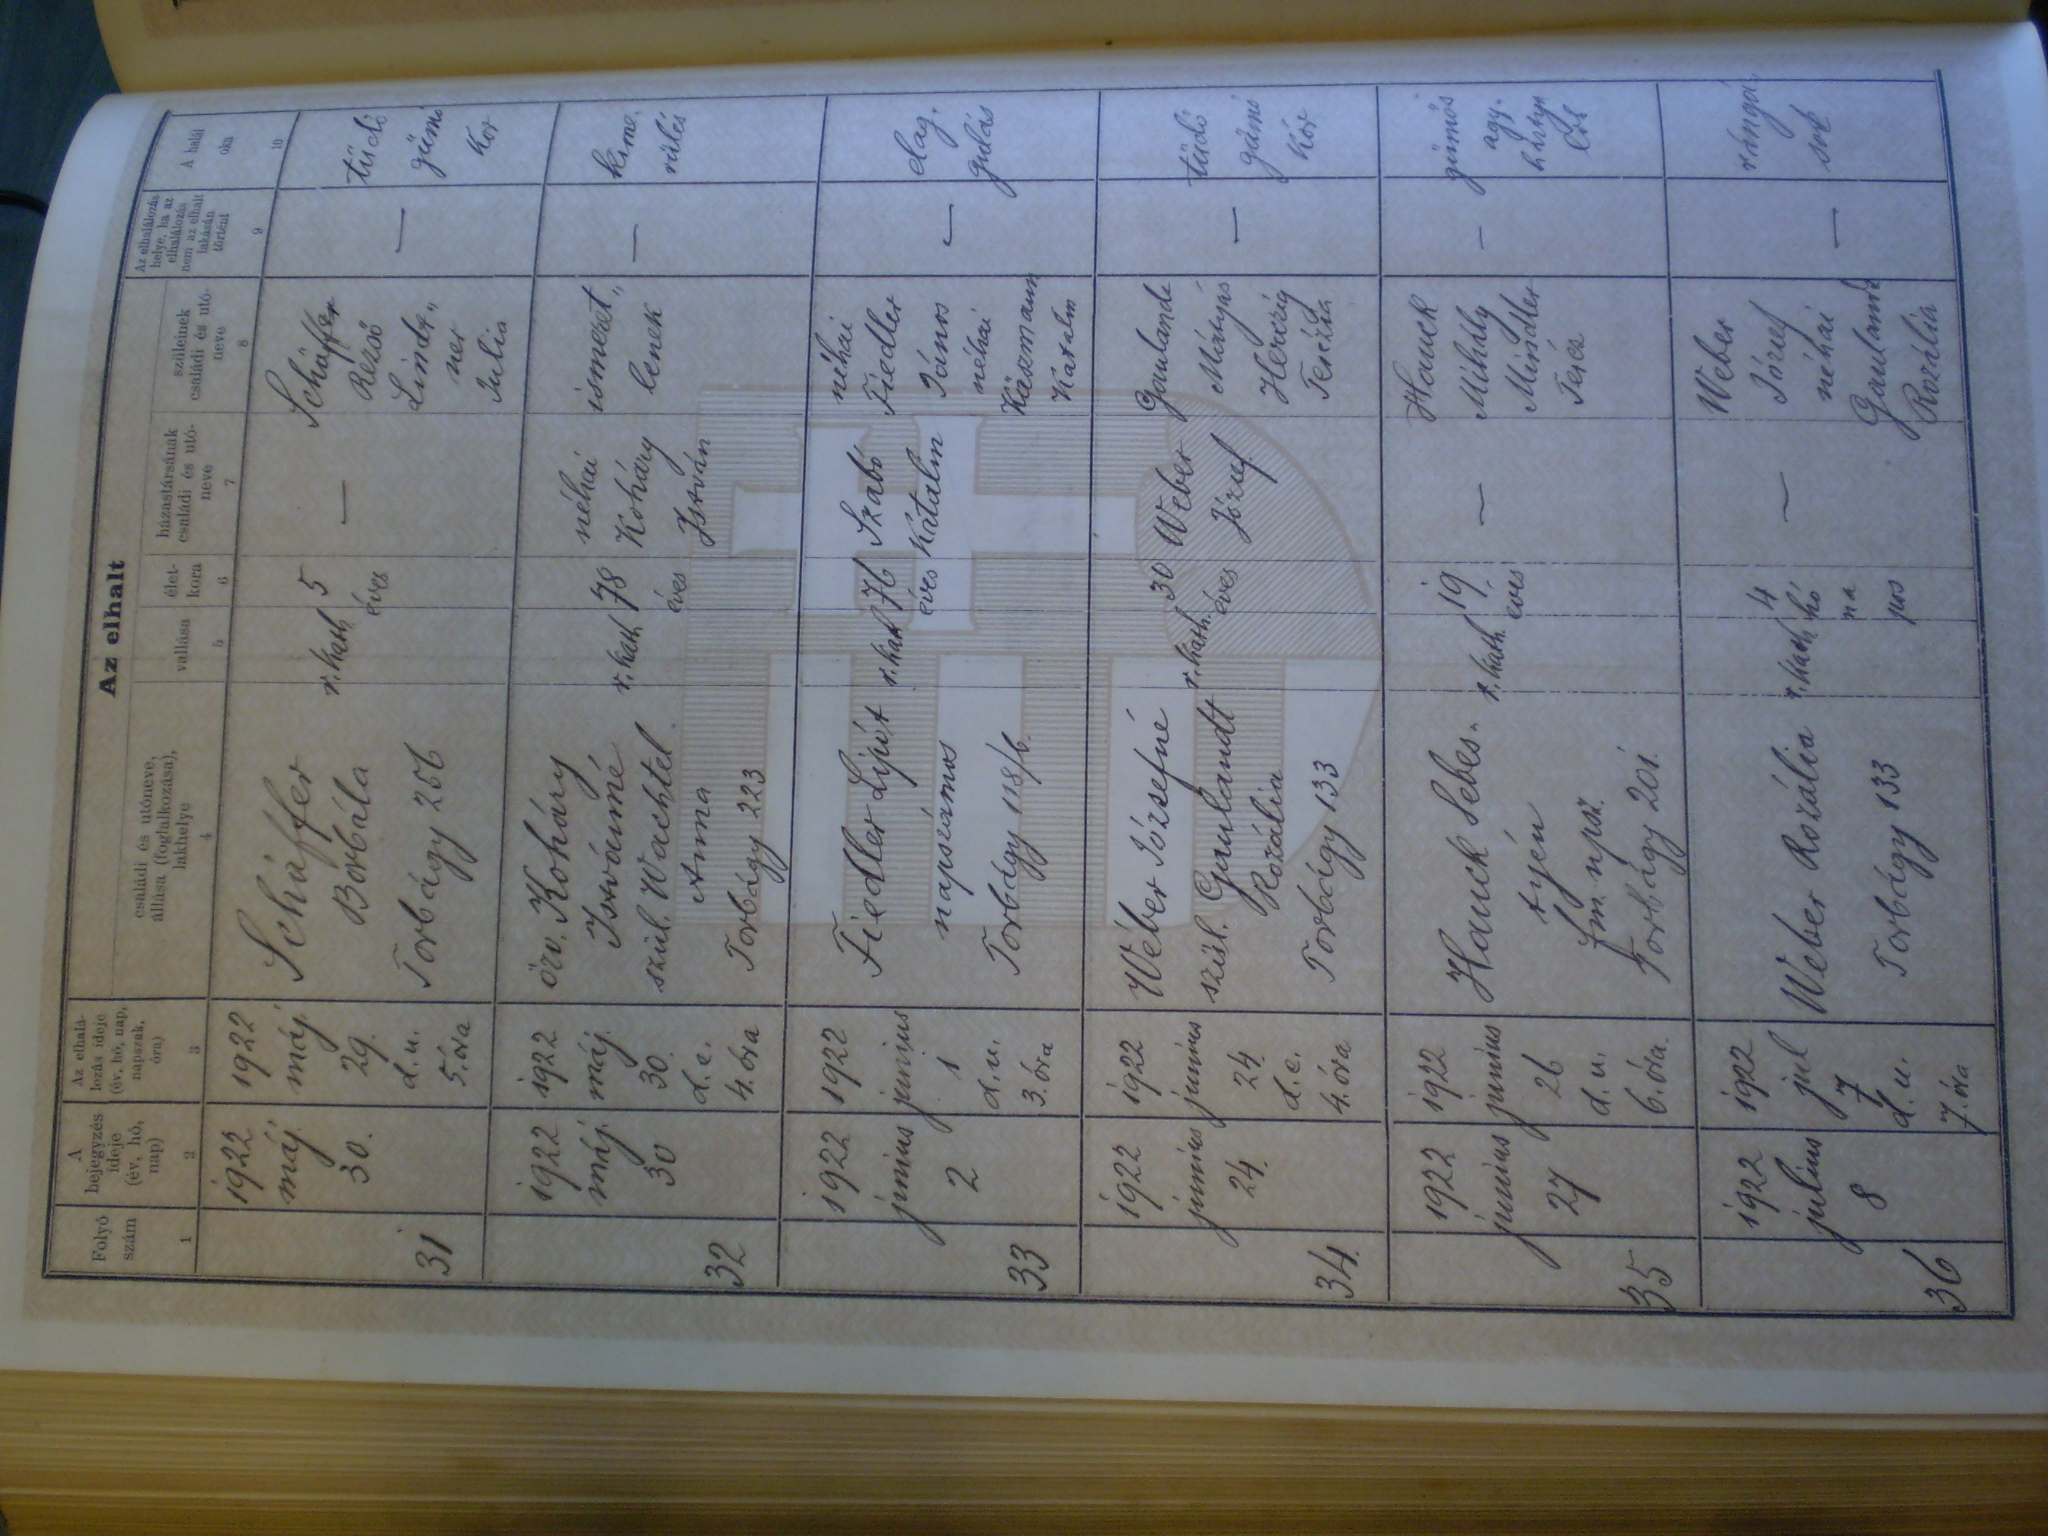 Az elhalt
Folyó
szám
A
bejegyzés
ideje
(év, hó,
nap)
Az elhalá-
lozás ideje
(év, hó, nap,
napszak,
óra)
családi és utóneve,
állása (foglalkozása),
lakhelye
vallása
élet-
kora
házastársának
családi és utó-
neve
szüleinek
családi és utó-
neve
Az elhalálozás
helye, ha az
elhalálozás
nem az elhalt
lakásán
történt
A halál
oka
1
2
3
4
5
6
7
8
9
10
31
1922
máj.
30.
1922
máj.
29.
d.u.
5. óra
Schäffer
Borbála
Torbágy 256
r. kath
5
éves
—
Schäffer
Rezső
Lindt„
ner
Julia
—
tüdő
gümő
kór
32
1922
máj.
30
1922
máj.
30.
d. e.
4. óra
özv. Koháry
Istvánné
szül. Wachtel
Anna
Torbágy 223
r. kath
78
éves
néhai
Koháry
István
ismeret„
lenek
—
kime.
rülés
33
1922
június
2
1922
június
1
d.u.
3. óra
Fiedler Lipót
napszámos
Torbágy 118/b.
r. kath
76
éves
Szabó
Katalin
néhai
Fiedler
János
néhai
Katalin
—
elag.
gulás
34.
1922
június
24.
1922
június
24.
d.e.
4. óra
Wéber Józsefné
szül. Gaulandt
Rozália
Torbágy 133
r. kath.
30
éves
Weber
József
Gaulandt
Mátyás
Herczig
Terézia
—
tüdő
gümő
kór
35
1922
június
27
1922
június
26
d.u.
6. óra.
Hauck Sebes.
tyén
fm. npsz.
Torbágy 201.
r. kath.
19.
éves
—
Hauck
Mihály
Mindler
Teréz
—
gümős
agy.
hártya
lob
36
1922
július
8
1922
jul
7
d.u.
7. óra
Weber Rozália
Torbágy 133
r. kath
4
hó
na
pos
—
Weber
József
néhai
Gaulandt
Rozália
—
rángó
sok